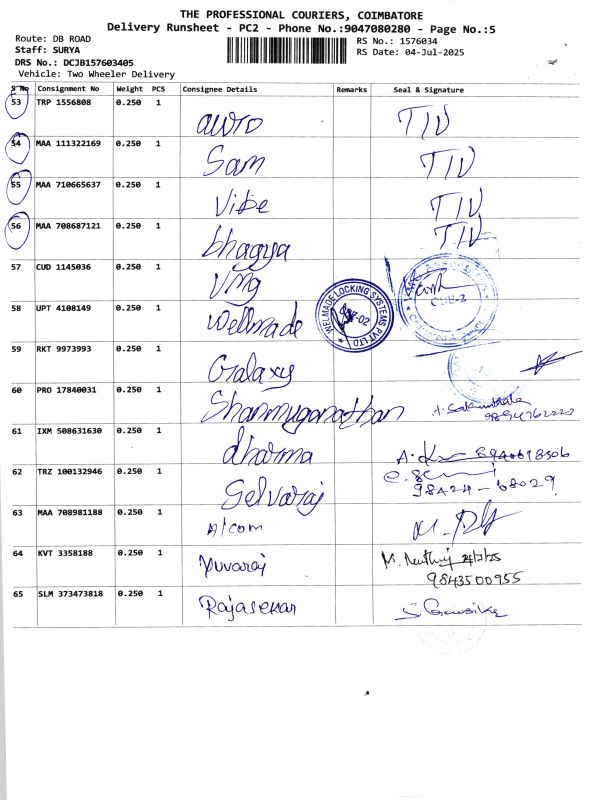 THE PROFESSIONAL COURIERS, COIMBATORE
Delivery Runsheet - PC2 - Phone No.:9047080280 - Page No.:5
Route: DB ROAD
RS No.: 1576034
Staff: SURYA
RS Date: 04-Jul-2025
DRS No.: DCJB157603405
Vehicle: Two Wheeler Delivery
S No Consignment No Weight PCS Consignee Details Remarks Seal & Signature
53 TRP 1556808 0.250 1 auro TIV
54 MAA 111322169 0.250 1 Sam TIV
55 MAA 710665637 0.250 1 Vibe TIV
56 MAA 708687121 0.250 1 bhagya TIV
57 CUD 1145036 0.250 1 VMG
CBE-2
58 UPT 4108149 0.250 1 Wellmade
WELMADE LOCKING SYSTEMS PVT LTD
59 RKT 9973993 0.250 1 Galaxy
60 PRO 17840031 0.250 1 Shanmuganathan
61 IXM 508631630 0.250 1 dharma
62 TRZ 100132946 0.250 1 Selvaraj
98424-68029
63 MAA 708981188 0.250 1
64 KVT 3358188 0.250 1 Yuvaraj
9843500955
65 SLM 373473818 0.250 1 Rajasekar